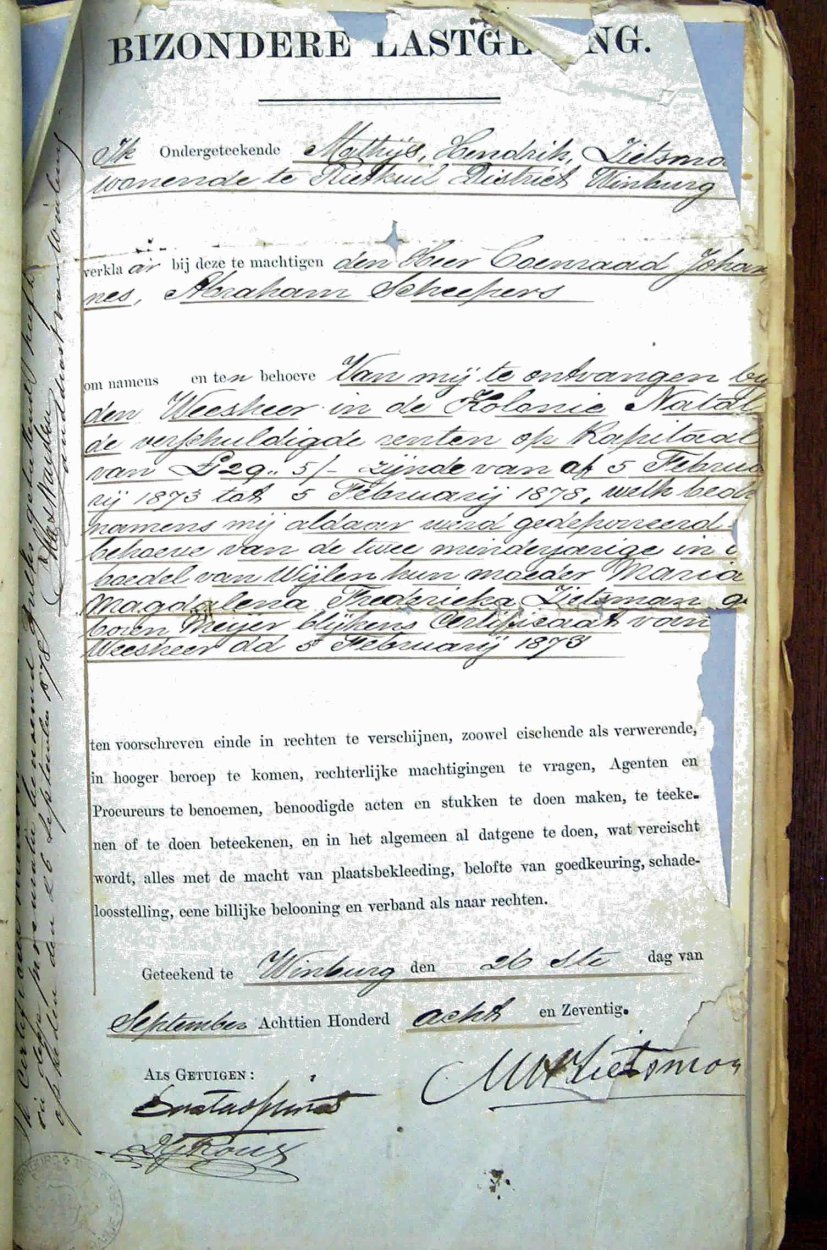 BIZONDERE LASTGE NG.
Ik Ondergeteekende Mathijs, Hendrik, Zietsma
wonende te Rietkuil District Winburg
verklaar bij deze te machtigen den Heer Coenraad Johan
nes, Abraham Scheepers
om namens en ten behoeve Van mij te ontvangen by
den Weesheer in de Kolonie Natal
de verschuldigde renten op Kapitaal
van £29,, 5/- zijnde van af 5 Februa
rij 1873 tot 5 Februarij 1878, welk bedr
namens mij aldaar werd gedeponeerd
behoeve van de twee minderjarige in
boedel van Wijlen hun moeder Maria
Magdalena Frederieka Zietsman g
boren Meyer blijkens Certificaat van
Weesheer dd 5 Februarij 1873
ten voorschreven einde in rechten te verschijnen, zoowel eischende als verwerende,
in hooger beroep te komen, rechterlijke machtigingen te vragen, Agenten en
Procureurs te benoemen, benoodigde acten en stukken te doen maken, te teeke-
nen of te doen beteekenen, en in het algemeen al datgene te doen, wat vereischt
wordt, alles met de macht van plaatsbekleeding, belofte van goedkeuring, schade-
loosstelling, eene billijke belooning en verband als naar rechten.
Geteekend te Winburg den 26 ste dag van
September Achttien Honderd acht en Zeventig.
ALS GETUIGEN:
MH Zietsman
Ik Certificeer
in deze procuratie benoemd zulks geteekend heeft
op heden den 26 September 1878
Landdrost van Winburg